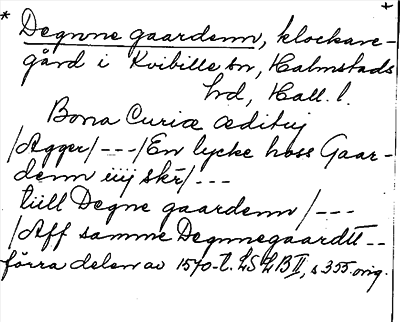 * Degnne gaardenn, klockare- +
gård i Kvibille sn, Halmstads
hd, Hall. l.
Bona Curiæ ædituj
/Agger/---/En lycke hoss Gaar-
denn iiij skr/---
tiill Degne gaardenn/---
/Aff samme Degnnegaardtt--
förra delen av 1570-t. LSLB II, s 355. orig.